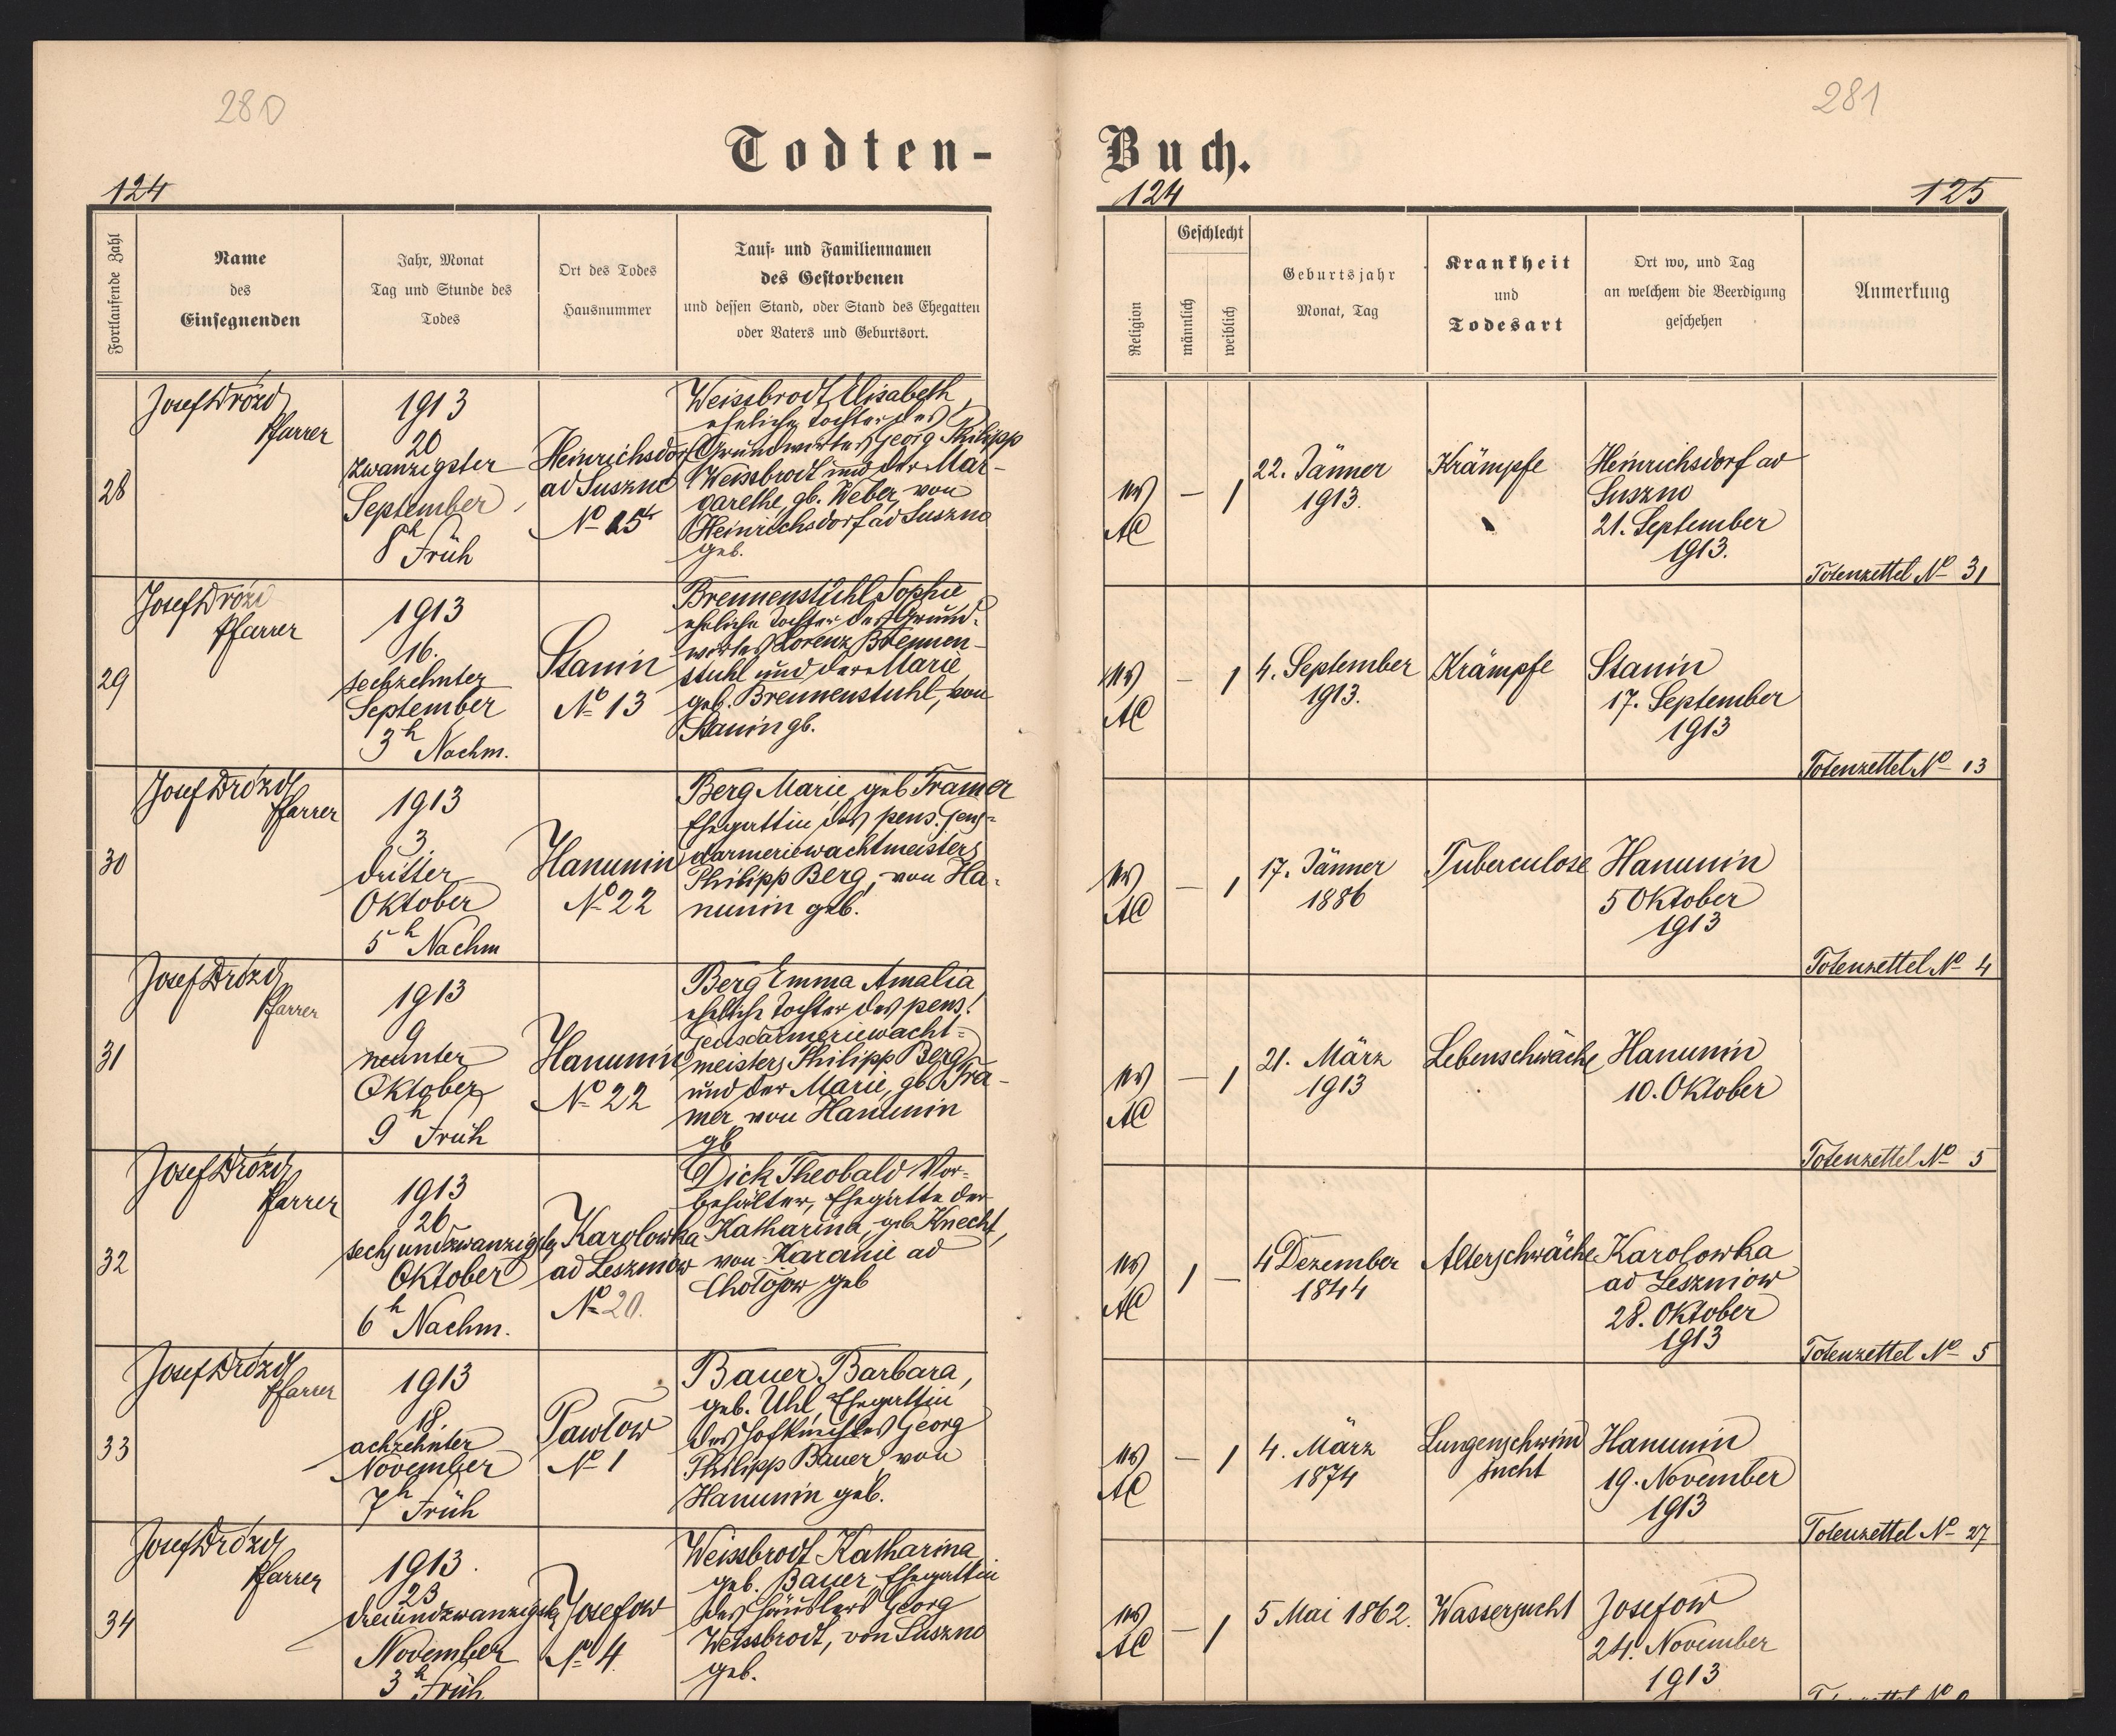 280
281
Todten-
Buch.
124
124
125
Fortlaufende Zahl
Name
des
Einsegnenden
Jahr, Monat
Tag und Stunde des
Todes
Ort des Todes
Hausnummer
Tauf- und Familiennamen
des Gestorbenen
und dessen Stand, oder Stand des Ehegatten
oder Vaters und Geburtsort.
Religion
Geschlecht
männlich
weiblich
Geburtsjahr
Monat, Tag
Krankheit
und
Todesart
Ort wo, und Tag
an welchem die Beerdigung
geschehen
Anmerkung
28
Josef Drózd
Pfarrer
1913
20
zwanzigster
September
8h Früh
Heinrichsdorf
ad Suszno
No 25
Weissbrodt Elisabeth,
eheliche Tochter des
Grundwirtes Georg Philipp
Weissbrodt und der Mar-
garethe, gb. Weber, von
Heinrichsdorf ad Suszno
geb.
AC
— 1
22. Jänner
1913.
Krämpfe
Heinrichsdorf ad
Suszno
21. September
1913.
Totenzettel No 31
29
Josef Drózd
Pfarrer
1913
16.
sechzehnter
September
3h Nachm.
Stanin
No 13
Brennenstuhl Sophie
eheliche Tochter des Grund-
wirtes Lorenz Brennen-
stuhl und der Marie
geb. Brennenstuhl, von
Stanin gb.
AC
— 1
4. September
1913.
Krämpfe
Stanin
17. September
1913
Totenzettel No 13
30
Josef Drózd
Pfarrer
1913
3.
dritter
Oktober
5h Nachm
Hanunin
No 22
Berg Marie, geb Tramer
Ehegattin des pens. Gens-
darmeriewachtmeisters
Philipp Berg, von Ha-
nunin geb.
AC
— 1
17. Jänner
1886
Tuberculose
Hanunin
5 Oktober
1913
Totenzettel No 4
31
Josef Drózd
Pfarrer
1913
9
neunter
Oktober
9h Früh
Hanunin
No 22
Berg Emma Amalia
eheliche Tochter des pens.
Gensdarmeriewacht-
meisters Philipp Berg
und der Marie, gb. Tra-
mer von Hanunin
gb
AC
— 1
21. März
1913
Lebenschwäche
Hanunin
10. Oktober
Totenzettel No 5
32
Josef Drózd
Pfarrer
1913
26
sechsundzwanzigster
Oktober
6h Nachm.
Karolowka
ad Leszniow
No 20.
Dick Theobald Vor-
behälter, Ehegatte der
Katharina, geb Knecht,
von Haranie ad
Chołojow geb
AC
1 —
4 Dezember
1844
Alterschwäche
Karolowka
ad Leszniow
28. Oktober
1913
Totenzettel No 5
33
Josef Drózd
Pfarrer
1913
18.
achzehnter
November
7h Früh
Pawłow
No 1
Bauer Barbara,
geb. Uhl, Ehegattin
des Hofknechtes Georg
Philipp Bauer von
Hanunin geb.
AC
— 1
4. März
1874
Lungenschwind
sucht
Hanunin
19. November
1913
Totenzettel No 27
34
Josef Drózd
Pfarrer
1913.
23
dreiundzwanzigster
November
3h Früh
Josefow
No 4.
Weissbrodt Katharina
geb. Bauer Ehegattin
des Häuslers Georg
Weissbrodt, von Suszno
geb.
AC
— 1
5 Mai 1862.
Wassersucht
Josefow
24. November
1913